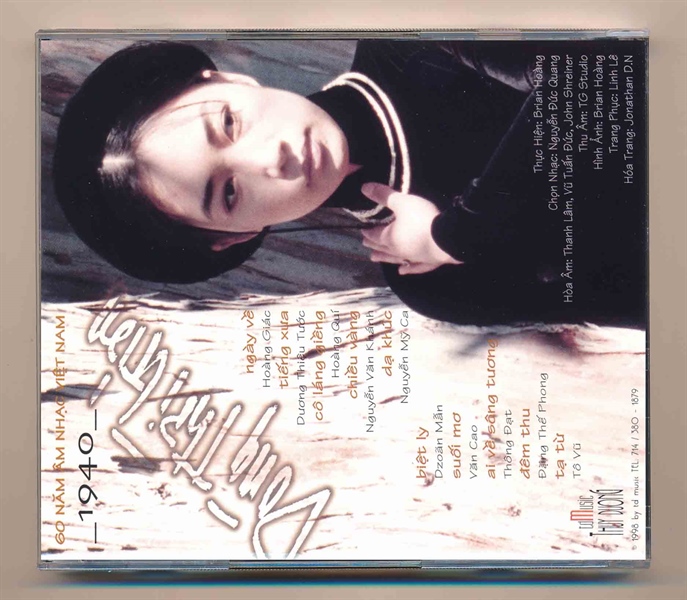 60 NĂM ÂM NHẠC VIỆT NAM
—1940—
Dòng Thời Gian
ngày về
Hoàng.Giác
tiếng xưa
Dương Thiệu Tước
cô láng giềng
Hoàng Quí
chiều vàng
Nguyễn Văn Khánh
dạ khúc
Nguyễn Mỹ.Ca
biệt ly
Dzoãn Mẫn
suối mơ
Văn Cao
ai về sông tương
Thông Đạt
đêm thu
Đặng Thế Phong
tạ từ
Tô Vũ
Thực Hiện: Brian Hoàng
Chọn Nhạc: Nguyễn Đức Quang
Hòa Âm: Thanh Lâm, Vũ Tuấn Đức, John Shreiner
Thu Âm: TG Studio
Hình Ảnh: Brian Hoàng
Trang Phục: Linh Lê
Hóa Trang: Jonathan D.N
TdMusic
THÚY DƯƠNG
© 1998 by td music TEL 714 / 380 - 1879